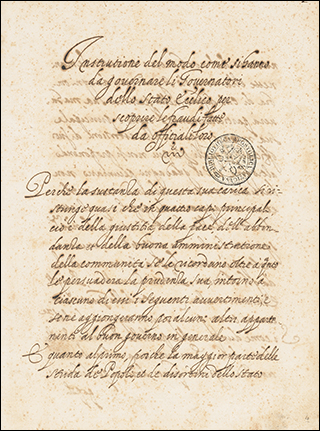 Instruzione del modo come si hanno
da governare li Governatori
dello Stato Ecclico per
scoprire le fraudi fatte
da officiali loro
Perche la sustanza di questa sua carica si ri-
stringe quasi che in quatro capi principali
cioè della giustitia della pace dell'abbon-
danza et della buona amministratione
della communità se le ricordano oltre a quel
le persuaderà la prudenza sua intorno a
ciascuno di essi i seguenti avvertimenti, e
sene aggiongeranno poi alcuni altri apparte-
nenti al buon governo in generale
Quanto al primo, perche la maggior parte delle
strida de Popoli, e de disordini dello Stato